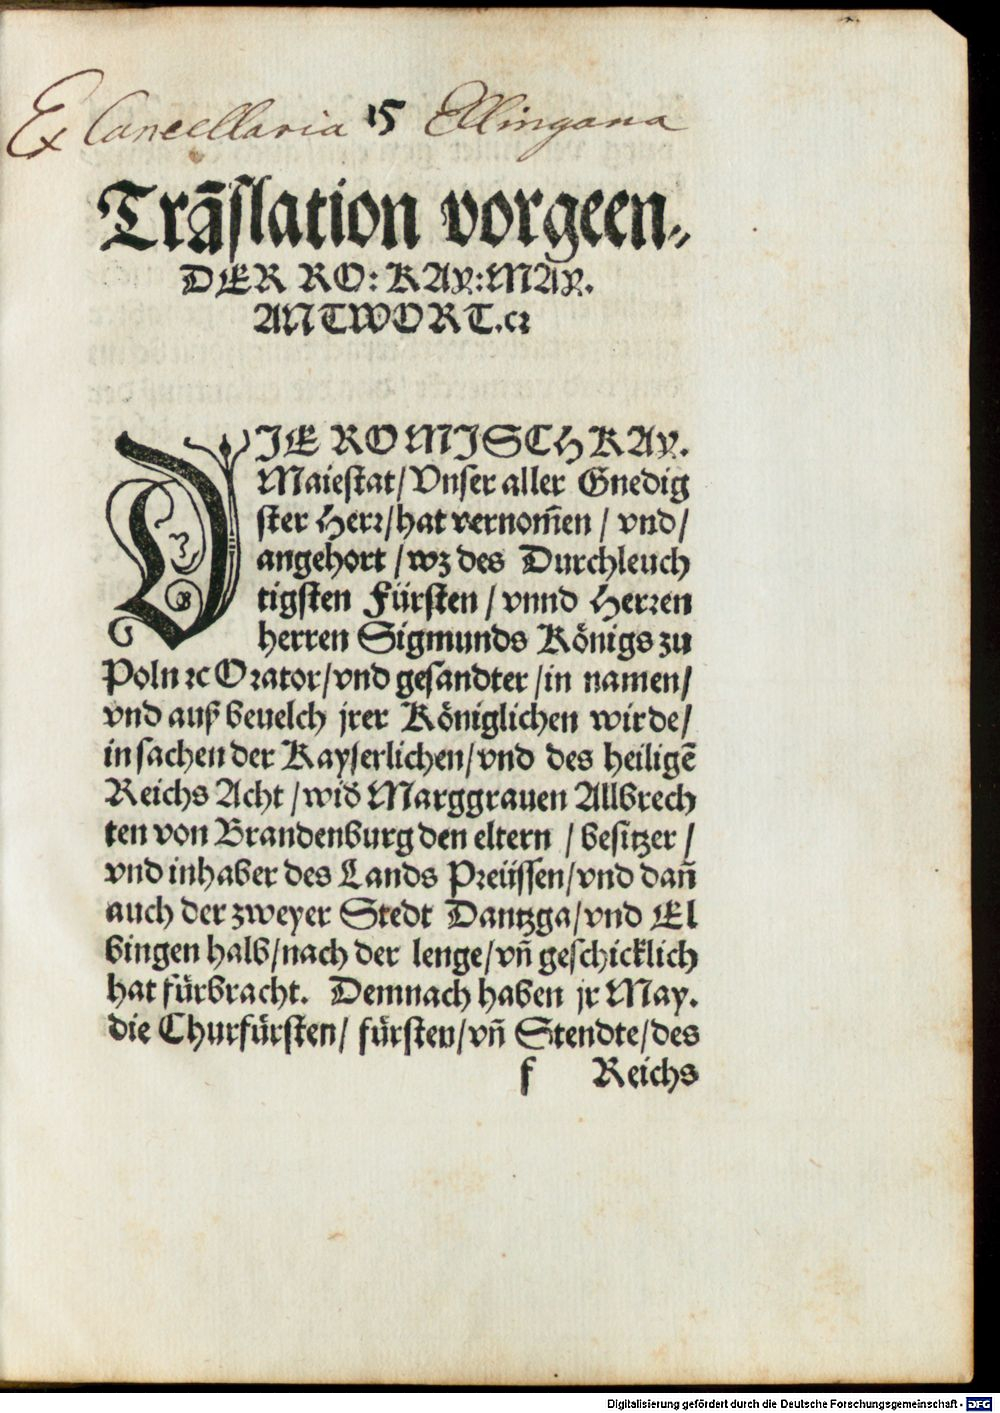 Ex Cancellaria 15 Ellingana
Trãslation vorgeen⸗
DER RO: KAY: MAY.
ANTWORT.ꝛc
DIE ROMISCH KAY.
Maiestat/Vnser aller Gnedig
ster Herꝛ/hat vernom̃en / vnd/
angehort /wz des Durchleuch
tigsten Fürsten / vnnd Herꝛen
herren Sigmunds Königs zu
Poln ꝛc Oꝛator/vnd gesandter /in namen/
vnd auß beuelch jrer Königlichen wirde/
in sachen der Kayserlichen/vnd des heiligẽ
Reichs Acht /wid̃ Marggrauen Allbrech
ten von Brandenburg den eltern / besitzer /
vnd inhaber des Lands Pꝛeüssen/vnd dañ
auch der zweyer Stedt Dantzga/vnd El
bingen halb/nach der lenge/vñ geschicklich
hat fürbracht. Demnach haben jr May.
die Churfürsten/ fürsten/vñ Stendte/des
f Reichs
Digitalisierung gefördert durch die Deutsche Forschungsgemeinschaft - DFG